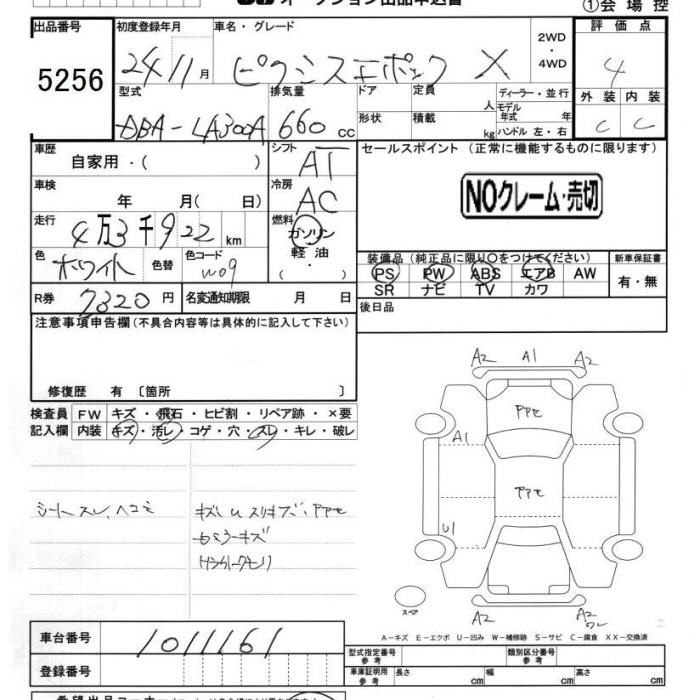 オークション出品申込書
①会場控
出品番号 5256
初度登録年月 24 11月
車名・グレード ピクシスエポック X
2WD・4WD
評価点 4
型式 DBA-LA300A
排気量 660cc
ドア 形状
定員 人 積載 kg
ディーラー・並行
モデル年式 年
ハンドル 左・右
外装 内装
C C
車歴 自家用・( )
シフト AT
セールスポイント(正常に機能するものに限ります)
車検 年 月( 日)
冷房 AC
NOクレーム・売切
走行 4万3千922km
燃料 ガソリン 軽油 ・( )
色 ホワイト 色替 色コード W09
装備品(純正品に限り○をつけてください)
新車保証書
PS PW ABS エアB AW
有・無
SR ナビ TV カワ
R券 7320円 名変通知期限 月 日
後日品
注意事項申告欄(不具合内容等は具体的に記入して下さい)
修復歴 有〔箇所 〕
検査員記入欄
FW キズ・飛石・ヒビ割・リペア跡・×要
内装 キズ・汚レ・コゲ・穴・スレ・キレ・破レ
A2 A1 A2
PPセ
A1
PPセ
U1
シートスレ、ヘコミ
キズ U スリキズ、PPセ
スペア
A2 A2
A-キズ E-エクボ U-凹み W-補修跡 S-サビ C-腐食 XX-交換済
車台番号 1011161
登録番号
型式指定番号 参考
類別区分番号 参考
車庫証明用 参考 長さ cm 幅 cm 高さ cm